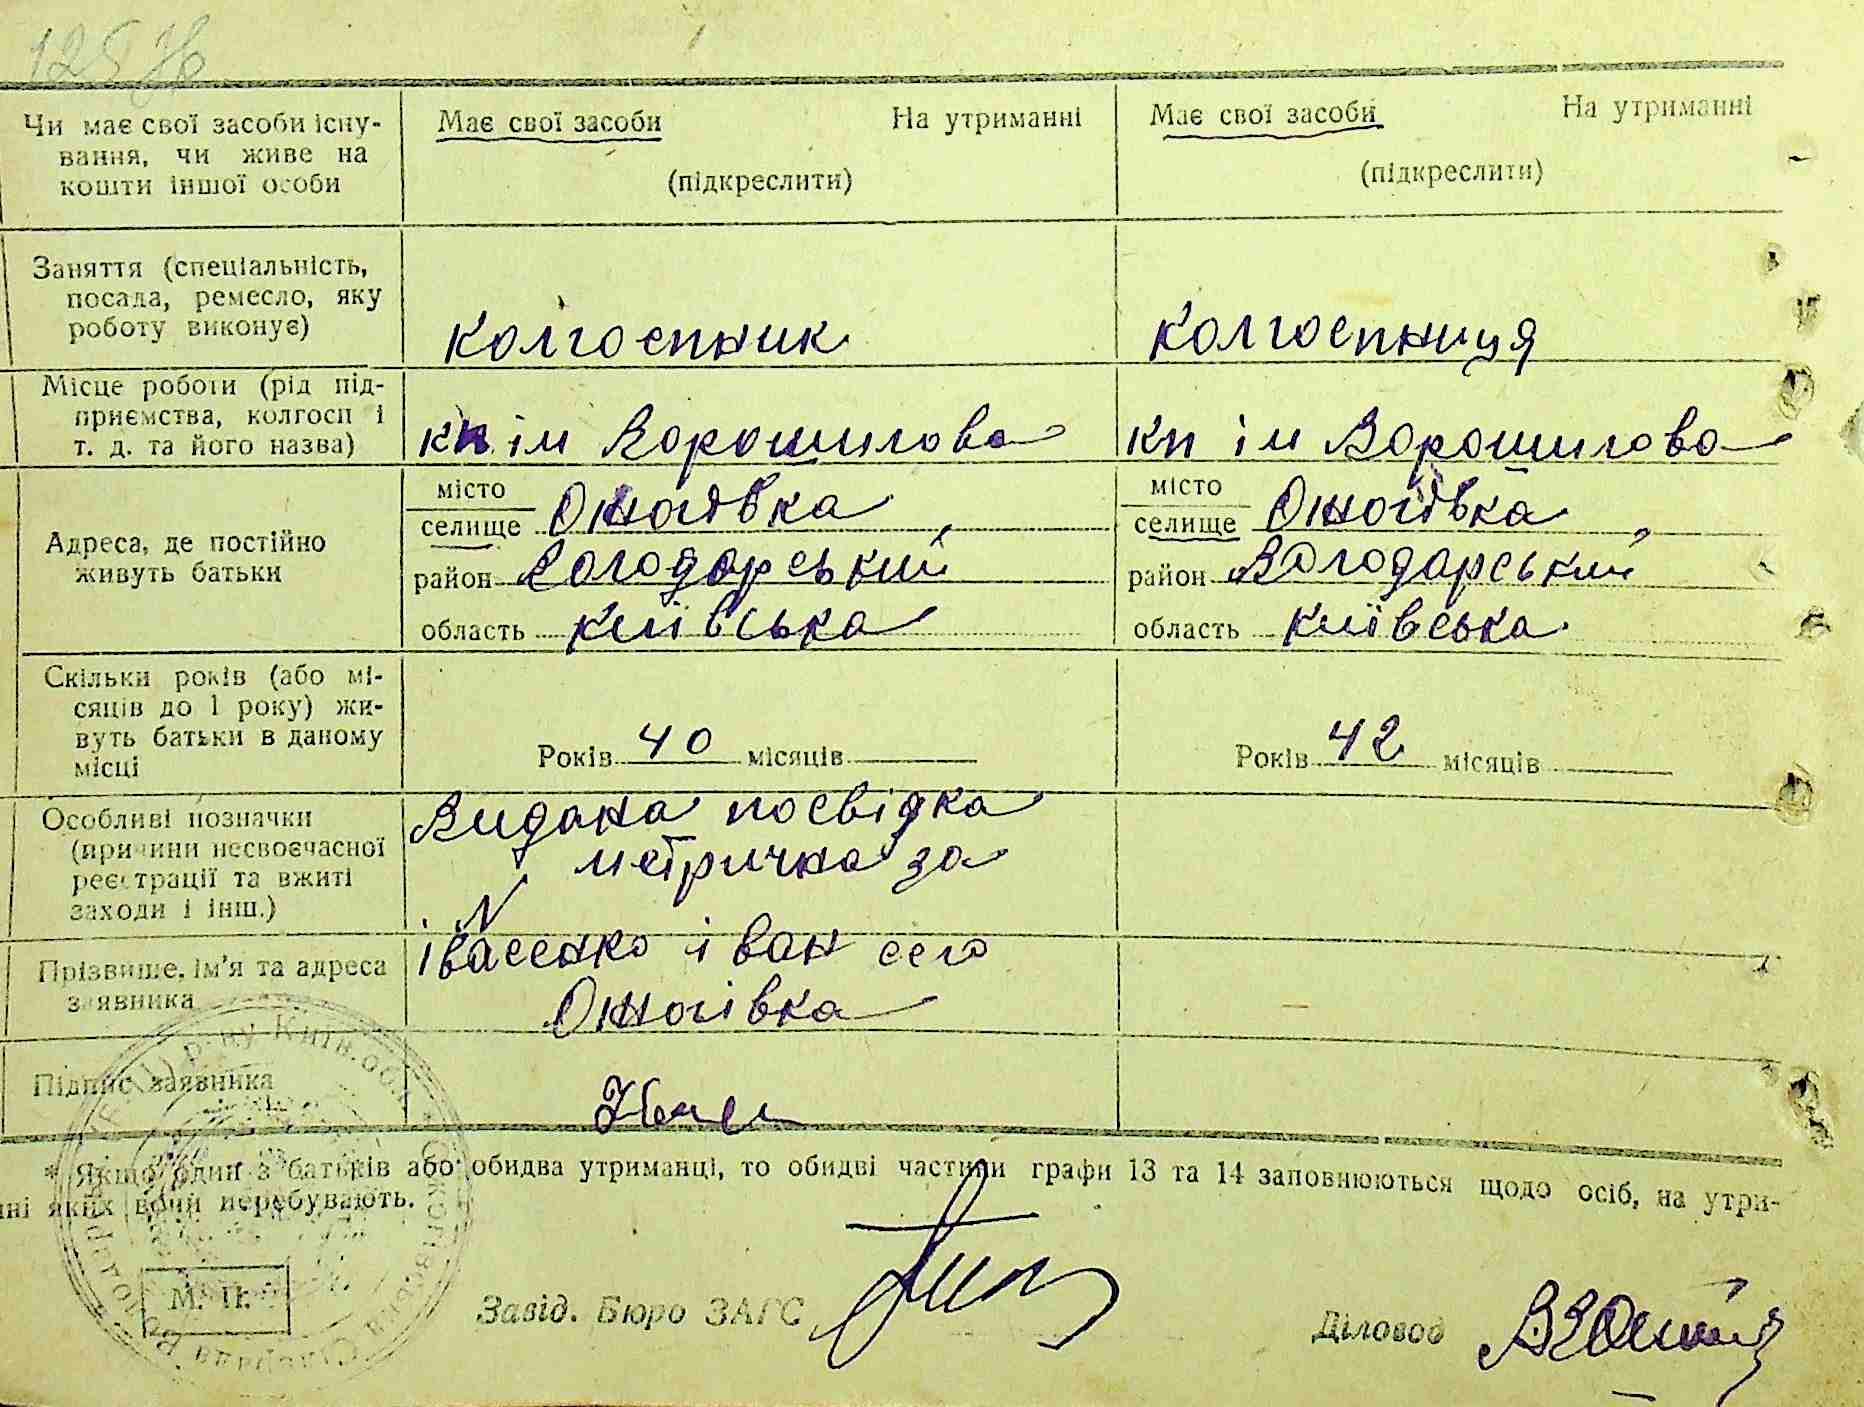 125
Чи має свої засоби існу-
вання, чи живе на
кошти іншої особи
Має свої засоби На утриманні
(підкреслити)
Має свої засоби На утриманні
(підкреслити)
Заняття (спеціальність,
посада, ремесло, яку
роботу виконує)
колгоспник
колгоспниця
Місце роботи (рід під-
приємства, колгосп і
т. д. та його назва)
кп ім Ворошилова
кп ім Ворошилова
Адреса, де постійно
живуть батьки
місто
селище Ожогівка
район Володарський
область київська
місто
селище Ожогівка
район Володарський
область київська
Скільки років (або мі-
сяців до 1 року) жи-
вуть батьки в даному
місці
Років 40 місяців
Років 42 місяців
Особливі позначки
(причини несвоєчасної
реєстрації та вжиті
заходи і інш.)
Видана посвідка
метрична за
N
Прізвище, ім'я та адреса
заявника
івасенко іван село
Ожогівка
Підпис заявника
* Якщо один з батьків або обидва утриманці, то обидві частини графи 13 та 14 заповнюються щодо осіб, на утри-
нні яких вони перебувають.
М. П.
Завід. Бюро ЗАГС
Діловод